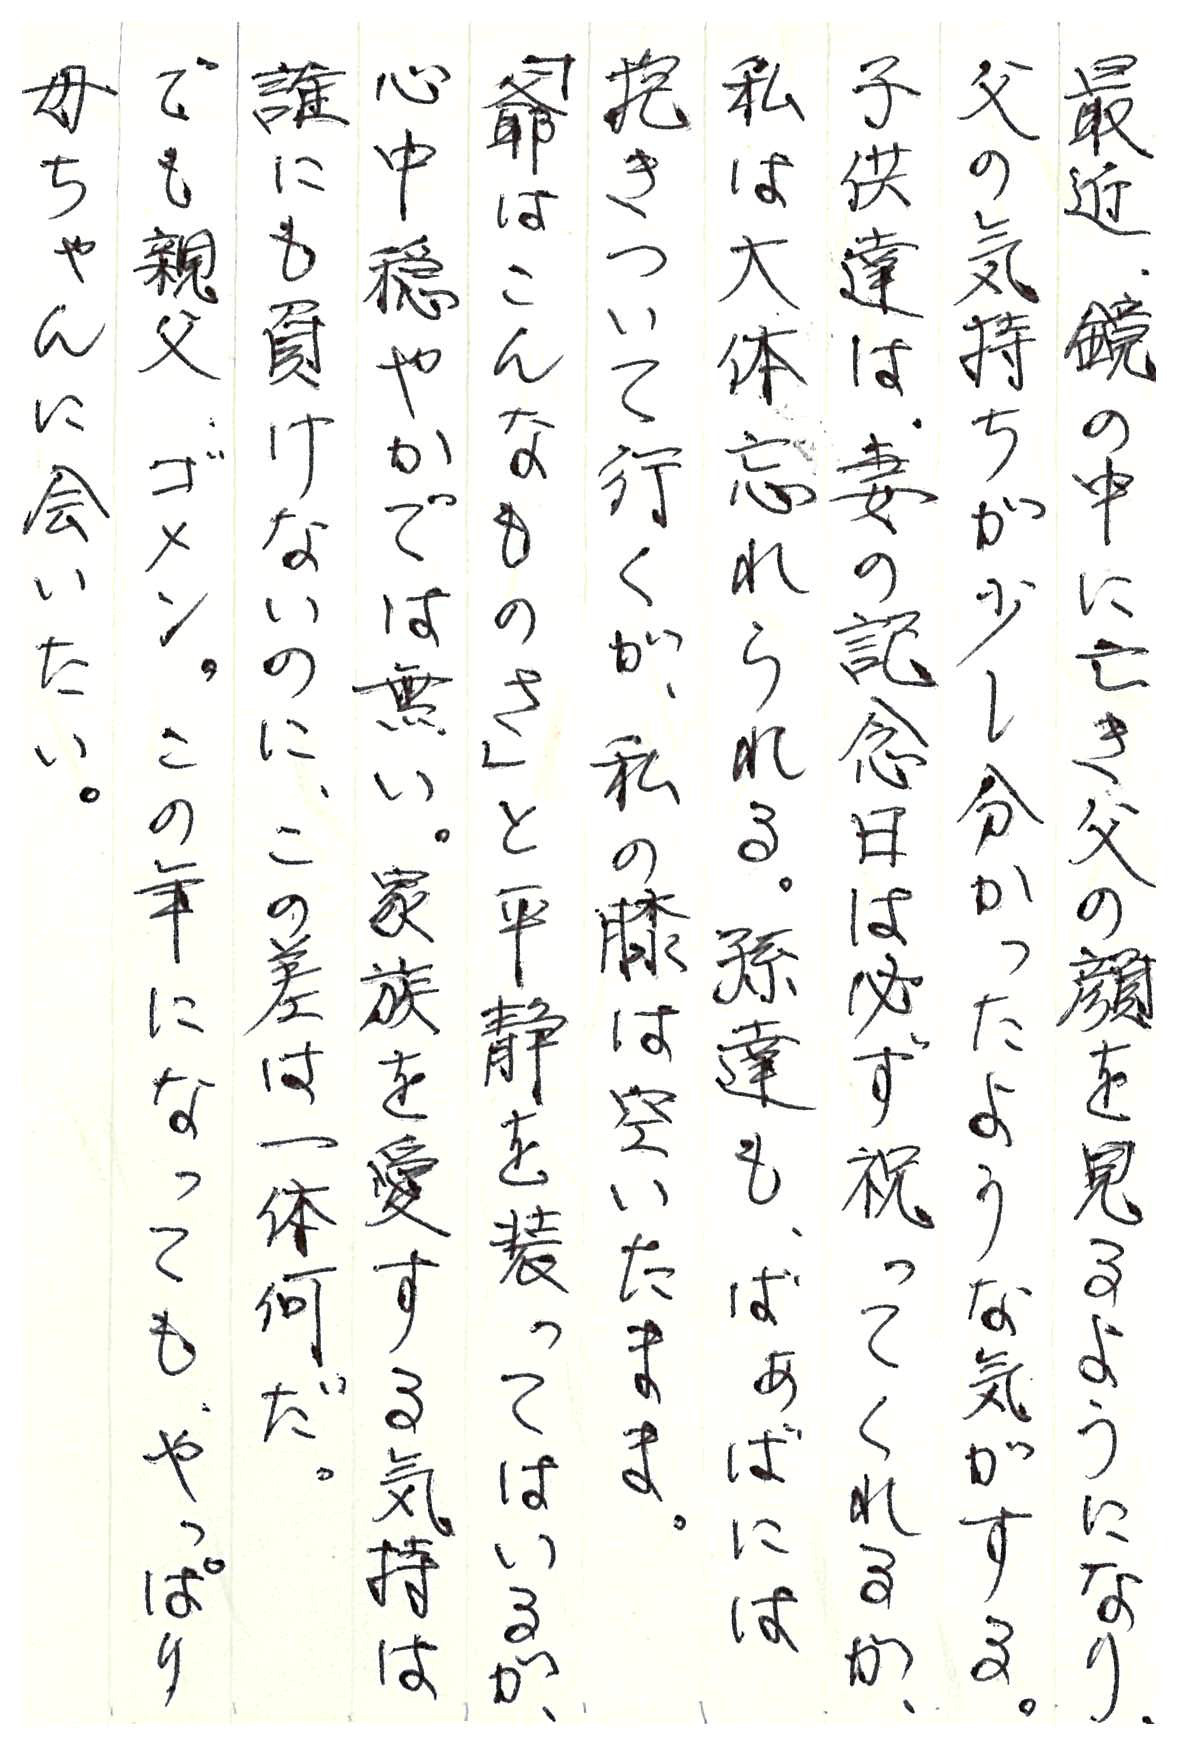 最近、鏡の中に亡き父の顔を見るようになり、
父の気持ちが少し分かったような気がする。
子供達は、妻の記念日は必ず祝ってくれるが、
私は大体忘れられる。孫達も、ばぁばには
抱きついて行くが、私の膝は空いたまま。
「爺はこんなものさ」と平静を装ってはいるが、
心中穏やかでは無い。家族を愛する気持は
誰にも負けないのに、この差は一体何だ。
でも親父、ゴメン。この年になっても、やっぱり
母ちゃんに会いたい。